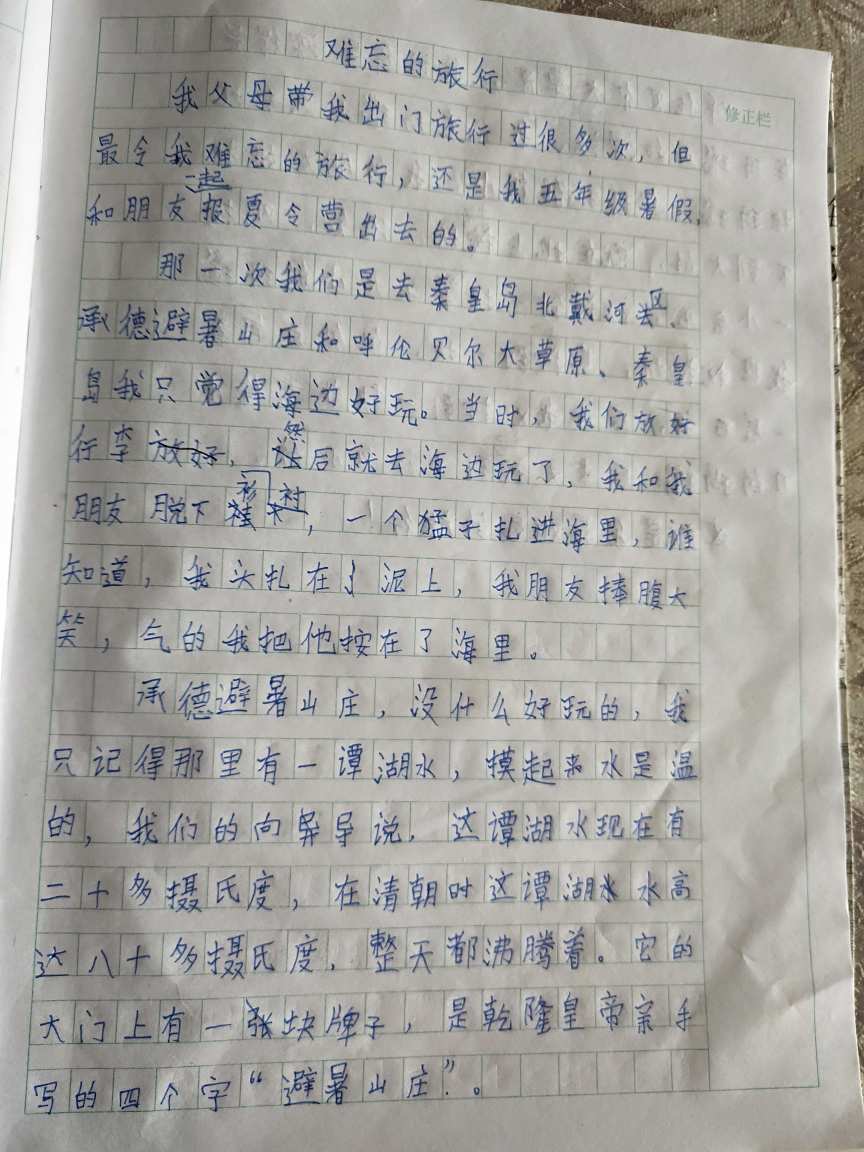 难忘的旅行
修正栏
我父母带我出门旅行过很多次，但
最令我难忘的旅行，还是我五年级暑假，
和朋友一起报夏令营出去的。
那一次我们是去秦皇岛北戴河区、
承德避暑山庄和呼伦贝尔大草原、秦皇
岛我只觉得海边好玩。当时，我们放好
行李，然后就去海边玩了，我和我
朋友脱下衬衫，一个猛子扎进海里，谁
知道，我头扎在了泥上，我朋友捧腹大
笑，气的我把他按在了海里。
承德避暑山庄，没什么好玩的，我
只记得那里有一谭湖水，摸起来水是温
的，我们的向导说，这谭湖水现在有
二十多摄氏度，在清朝时这谭湖水水高
达八十多摄氏度，整天都沸腾着。它的
大门上有一块牌子，是乾隆皇帝亲手
写的四个字“避暑山庄”。